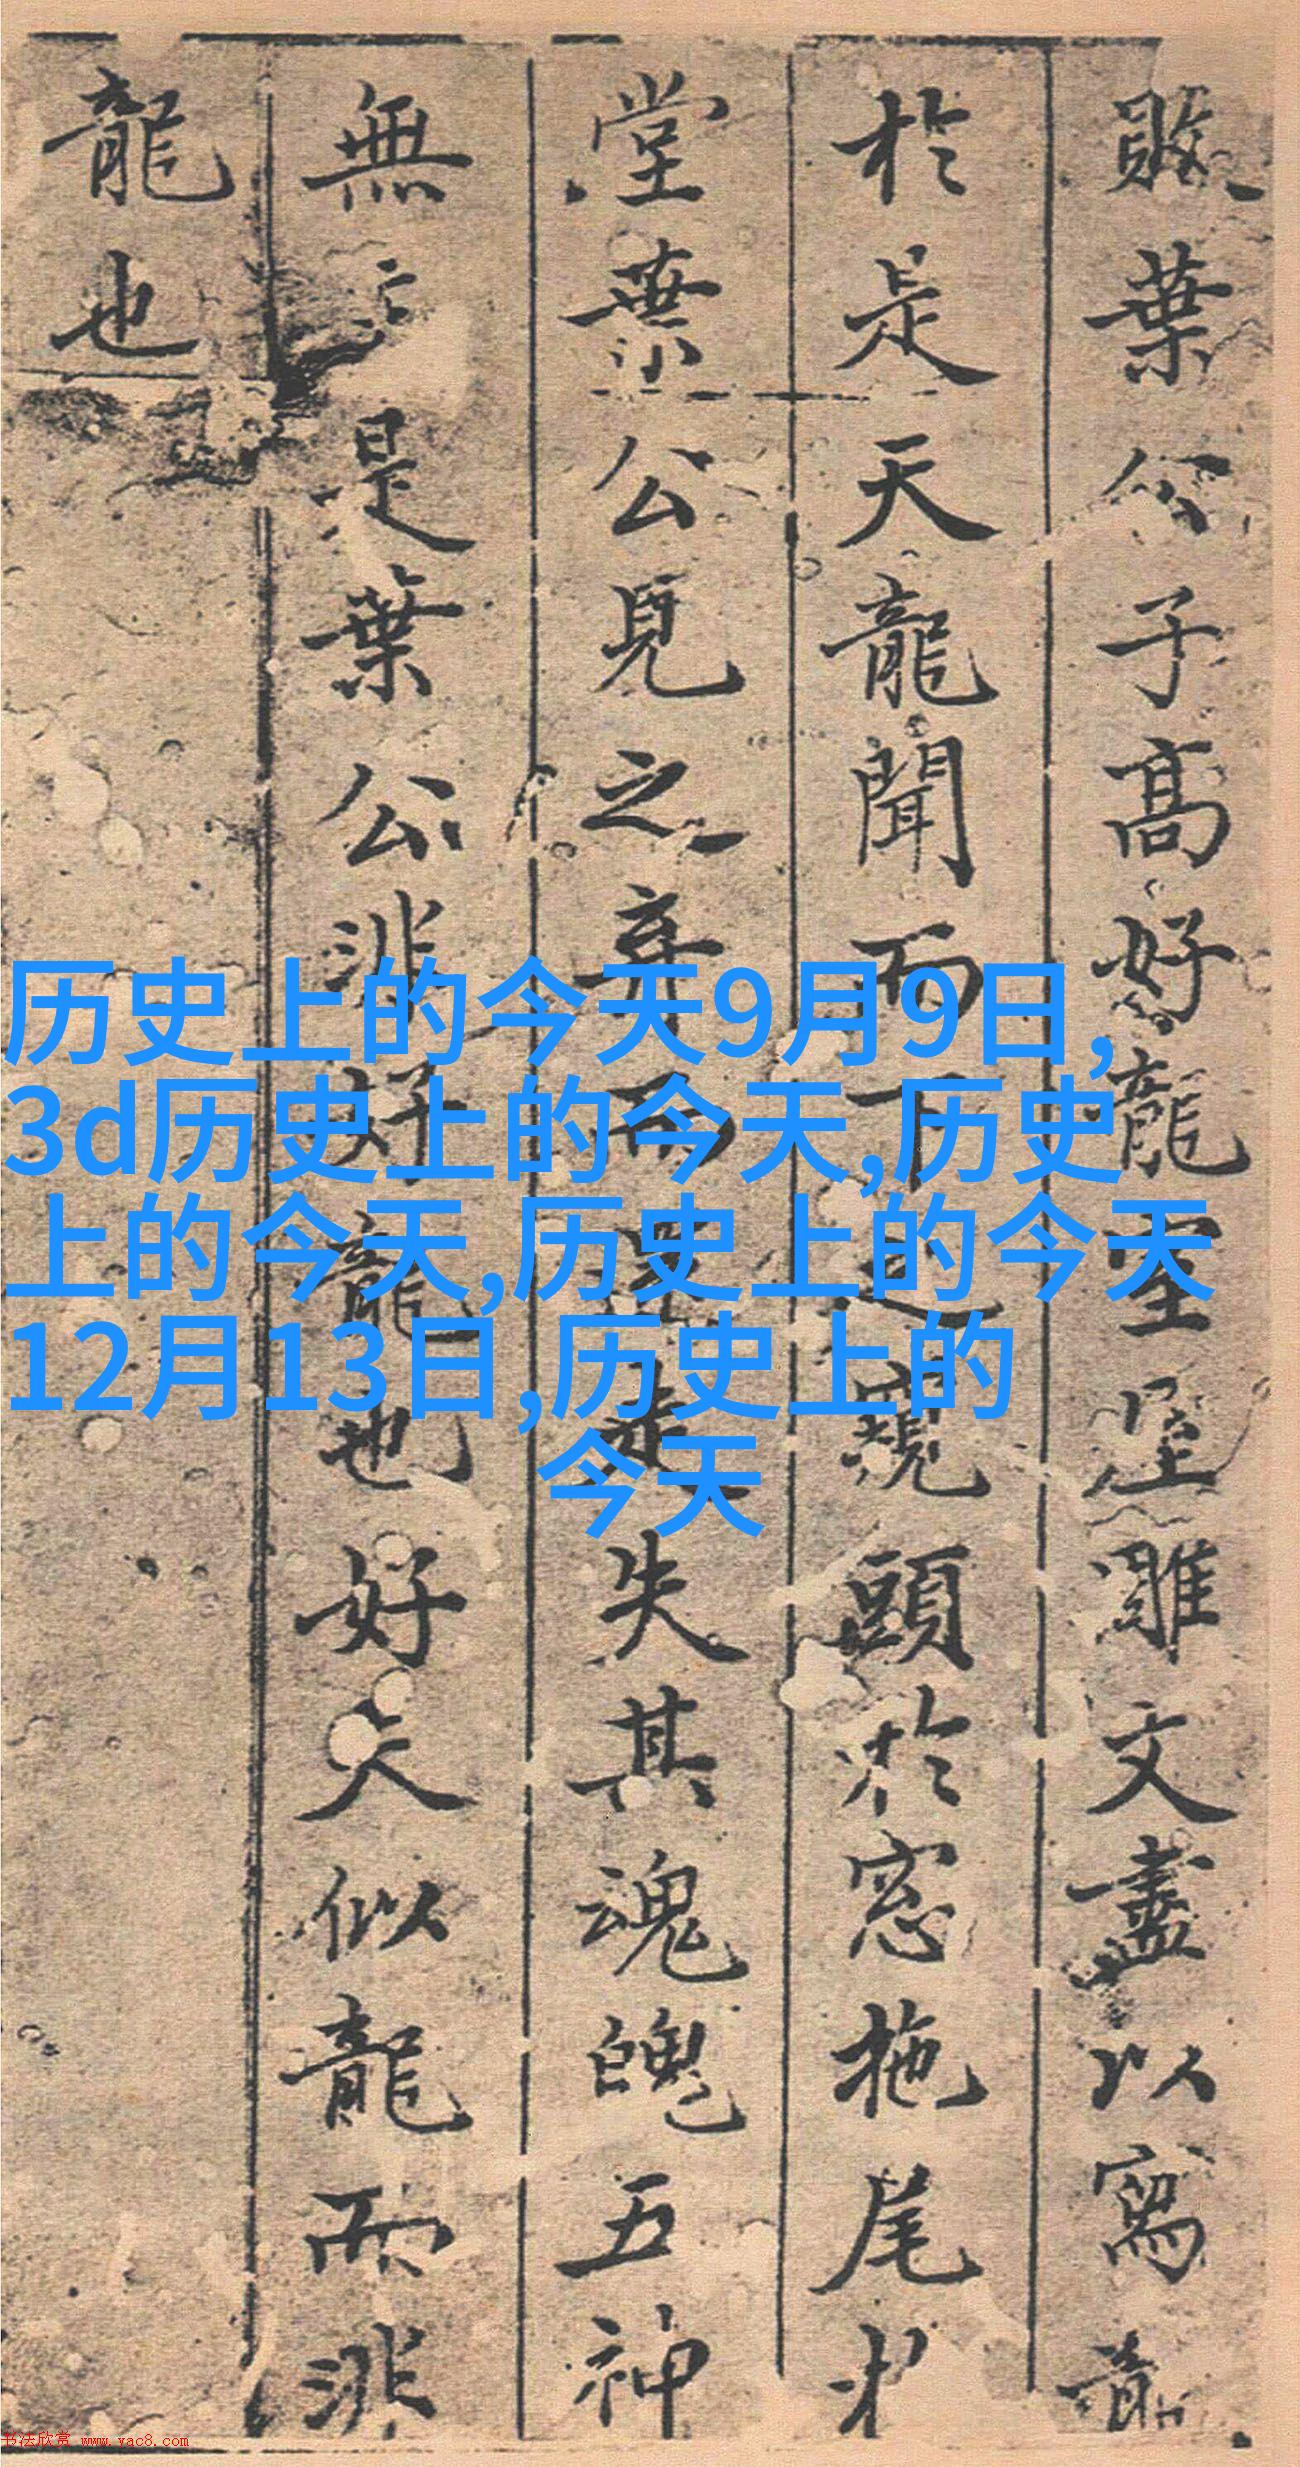 敗葉公子高好龍室屋雕文盡以寫龍
於是天龍聞而下之窺頭於窓拖尾
堂葉公見之弃而還走失其魂魄五神
無主是葉公非好龍也好夫似龍而非
龍也
历史上的今天9月9日,
3d历史上的今天,历史
上的今天,历史上的今天
12月13日,历史上的
今天
书法欣赏 www.yac8.com